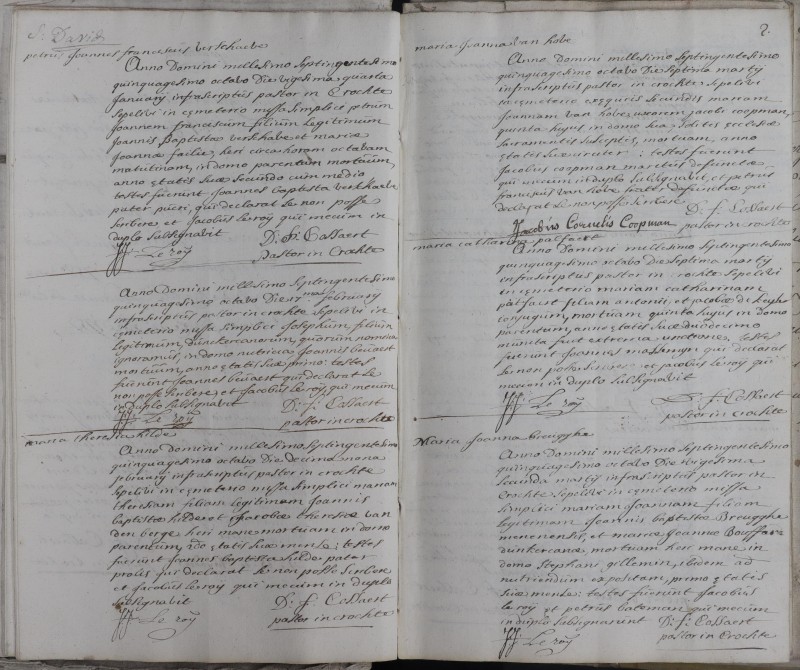 petrus joannes franciscus verschaebe
Anno Domini millesimo septingentesimo
quinquagesimo octavo Die vigesima quarta
January infrascriptus pastor in Crochte
sepelivi in cæmeterio missa simplici petrum
joannem franciscum filium legitimum
joannis baptistæ verschabe et mariæ
joannæ heri circa horam octavam
matutinam, in domo parentum mortuum,
anno ætatis suæ secundo cum medio
testes fuerunt joannes baptista verschabe
pater pueri, qui declarat se non posse
scribere et jacobus leroy qui mecum in
duplo subsignavit D. f. Cossaert
Le roy pastor in Crochte
Anno Domini millesimo septingentesimo
quinquagesimo octavo Die 17 february
infrascriptus pastor in crochte sepelivi in
cæmeterio missa simplici josephum, filium
legitimum, dunkercanorum, quorum nomina
ignoramus, in domo nutricis joannis
mortuum, anno ætatis suæ primo: testes
fuerunt joannes qui declarat se
non posse scribere et jacobus leroy, qui mecum
in duplo subsignavit D. f. Cossaert
Le roy pastor in crochte
maria theresia hilde
Anno Domini millesimo septingentesimo
quinquagesimo octavo Die decima nona
february infrascriptus pastor in crochte
sepelivi in cæmeterio missa simplici mariam
theresiam filiam legitimam joannis
baptistæ hilde et jacobæ theresiæ van
den berge heri mane mortuam in domo
parentum, ætatis suæ mense; testes
fuerunt joannes baptista hilde pater
prolis qui declarat se non posse scribere
et jacobus leroy qui mecum in duplo
subsignavit D. f. Cossaert
Le roy pastor in crochte
2.
maria joanna van hove
Anno Domini millesimo septingentesimo
quinquagesimo octavo Die septima marty
infrascriptus pastor in crochte sepelivi
in cæmeterio exequiis secundis mariam
joannam van hove, uxorem jacobi coopman,
quinta hujus in domo sua, solitis ecclesiæ
sacramentis susceptis, mortuam, anno
ætatis suæ testes fuerunt
jacobus coopman maritus defunctæ
qui mecum in duplo subsignavit, et petrus
franciscus van hove pater defunctæ qui
declarat se non posse scribere
Jacobus Cornelis Coopman D. f. Cossaert
pastor in crochte
maria catharina palfaert
Anno Domini millesimo septingentesimo
quinquagesimo octavo Die septima marty
infrascriptus pastor in crochte sepelivi
in cæmeterio mariam catharinam
palfaert filiam antonii, et jacobæ de
conjugum, mortuam quinta hujus in domo
parentum, anno ætatis suæ duodecimo
munita fuit extrema unctione, testes
fuerunt joannes qui declarat
se non posse scribere et jacobus le roy qui
mecum in duplo subsignavit
Le roy D. f. Cossaert
pastor in crochte
Maria joanna breugghe
Anno Domini millesimo septingentesimo
quinquagesimo octavo Die vigesima
secunda marty infrascriptus pastor in
Crochte sepelivi in cæmeterio missa
simplici mariam joannam filiam
legitimam joannis baptistæ Breugghe
menenensis, et mariæ joannæ Bouffar
dunkercanæ, mortuam heri mane in
domo stephani gillemin, ibidem ad
nutriendum expositam, primo ætatis
suæ mense: testes fuerunt jacobus
le roy et petrus bateman qui mecum
in duplo subsignarunt D. f. Cossaert
Le roy pastor in Crochte